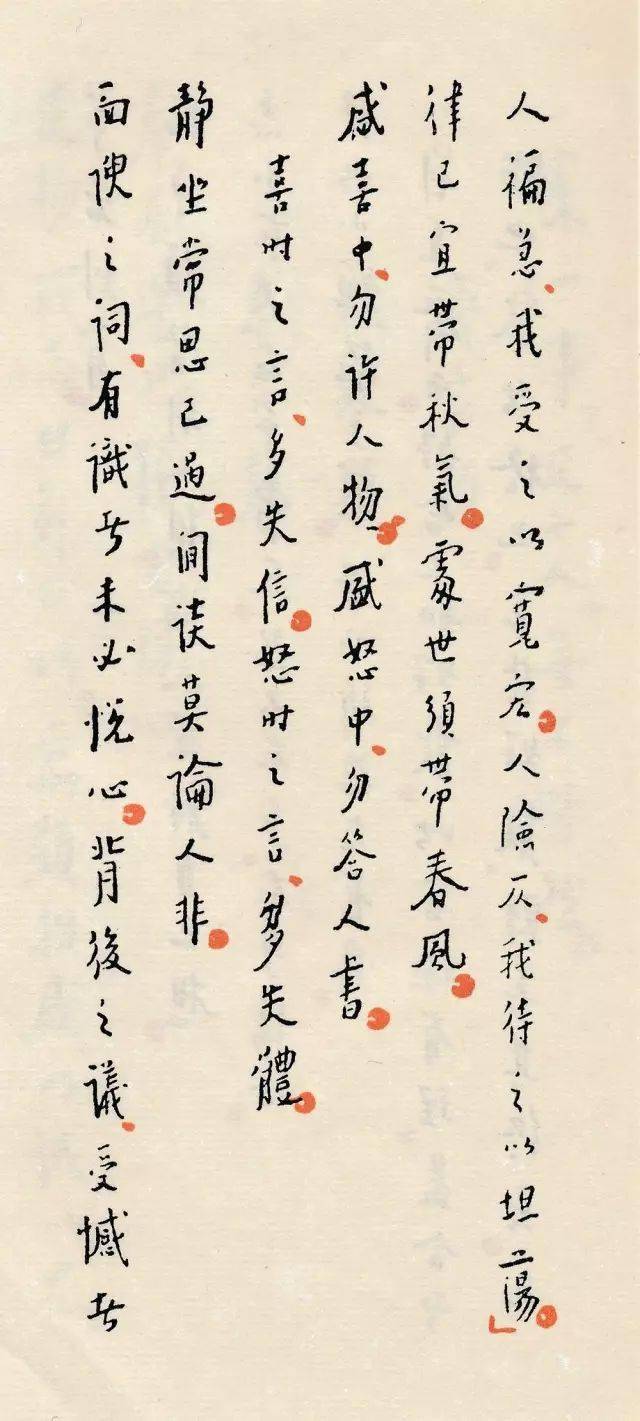 人褊急、我受之以寬宏。人險仄、我待之以坦蕩。」
律己宜帶秋氣。處世須帶春風。
盛喜中、勿許人物。盛怒中、勿答人書。
喜时之言、多失信。怒时之言、多失體。
静坐常思己過。閒談莫論人非。
面諛之詞、有識者未必悅心。背後之議、受憾者